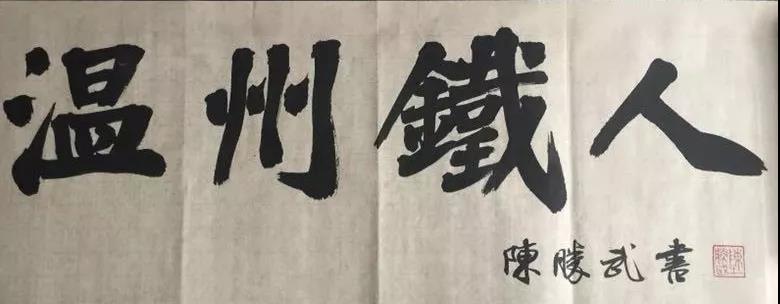 温州鐵人
陳勝武書